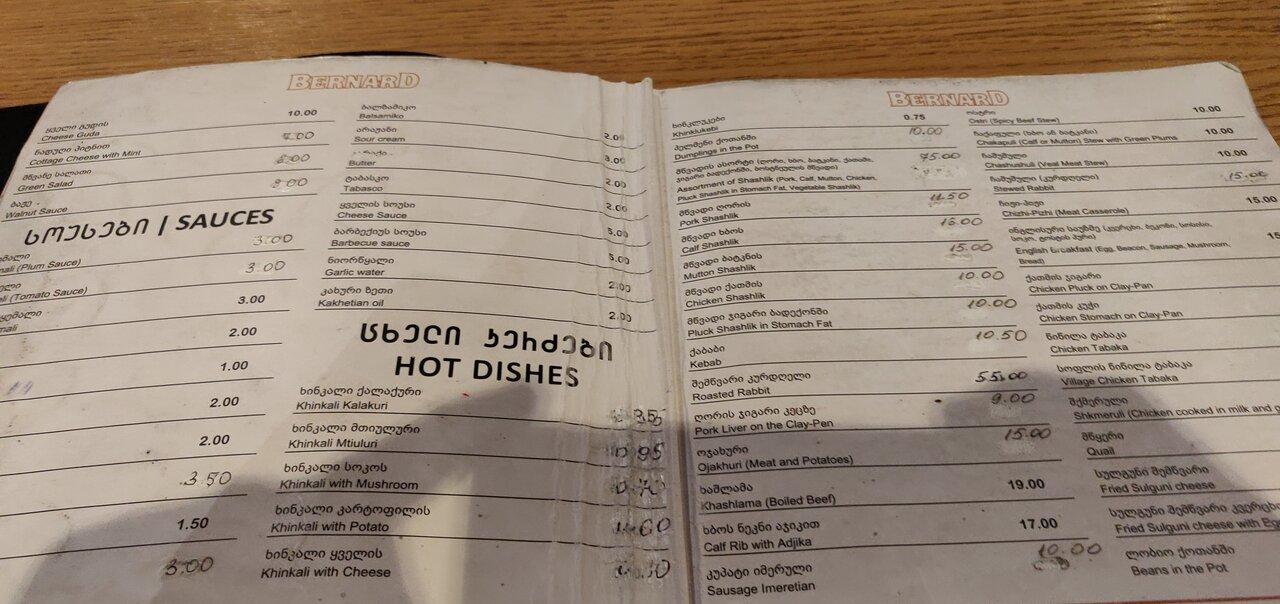 BERNARD
ყველი გუდის
Cheese Guda
10.00
ნადული პიტნით
Cottage Cheese with Mint
მწვანე სალათი
Green Salad
ბაჟე
Walnut Sauce
სოუსები / SAUCES
3.00
(Plum Sauce)
3.00
(Tomato Sauce)
3.00
2.00
1.00
2.00
2.00
3.50
1.50
3.00
ბალზამიკო
Balsamiko
2.00
არაჟანი
Sour cream
3.00
Butter
2.00
ტაბასკო
Tabasco
2.00
ყველის სოუსი
Cheese Sauce
5.00
ბარბექიუს სოუსი
Barbecue sauce
5.00
ნიორწყალი
Garlic water
2.00
კახური ზეთი
Kakhetian oil
2.00
ცხელი კერძები
HOT DISHES
ხინკალი ქალაქური
Khinkali Kalakuri
ხინკალი მთიულური
Khinkali Mtiuluri
ხინკალი სოკოს
Khinkali with Mushroom
ხინკალი კარტოფილის
Khinkali with Potato
ხინკალი ყველის
Khinkali with Cheese
BERNARD
ხინკლუკები
Khinklukebi
0.75
პელმენი ქოთანში
Dumplings in the Pot
10.00
მწვადის ასორტი (ღორი, ხბო, ბატკანი, ქათამი,
ჯიგარი ბადექონში, ბოსტნეულის მწვადი)
Assortment of Shashlik (Pork, Calf, Mutton, Chicken,
Pluck Shashlik in Stomach Fat, Vegetable Shashlik)
75.00
მწვადი ღორის
Pork Shashlik
11.50
მწვადი ხბოს
Calf Shashlik
16.00
მწვადი ბატკნის
Mutton Shashlik
15.00
მწვადი ქათმის
Chicken Shashlik
10.00
მწვადი ჯიგარი ბადექონში
Pluck Shashlik in Stomach Fat
10.00
ქაბაბი
Kebab
10.50
შემწვარი კურდღელი
Roasted Rabbit
55.00
ღორის ჯიგარი კეცზე
Pork Liver on the Clay-Pen
9.00
ოჯახური
Ojakhuri (Meat and Potatoes)
15.00
ხაშლამა
Khashlama (Boiled Beef)
19.00
ხბოს ნეკნი აჯიკით
Calf Rib with Adjika
17.00
კუპატი იმერული
Sausage Imeretian
10.00
ოსტრი
Ostri (Spicy Beef Stew)
10.00
ჩაქაფული (ხბო ან ბატკანი)
Chakapuli (Calf or Mutton) Stew with Green Plums
10.00
ჩაშუშული
Chashushuli (Veal Meat Stew)
10.00
ჩაშუშული (კურდღელი)
Stewed Rabbit
15.00
ჩიჟი-პიჟი
Chizhi-Pizhi (Meat Casserole)
15.00
English Breakfast (Egg, Beacon, Sausage, Mushroom,
Bread)
ქათმის ჯიგარი
Chicken Pluck on Clay-Pan
ქათმის კუჭი
Chicken Stomach on Clay-Pan
წიწილა ტაბაკა
Chicken Tabaka
სოფლის წიწილა ტაბაკა
Village Chicken Tabaka
შქმერული
Shkmeruli (Chicken cooked in milk and
მწყერი
Quail
სულგუნი შემწვარი
Fried Sulguni cheese
სულგუნი შემწვარი
Fried Sulguni cheese with
ლობიო ქოთანში
Beans in the Pot